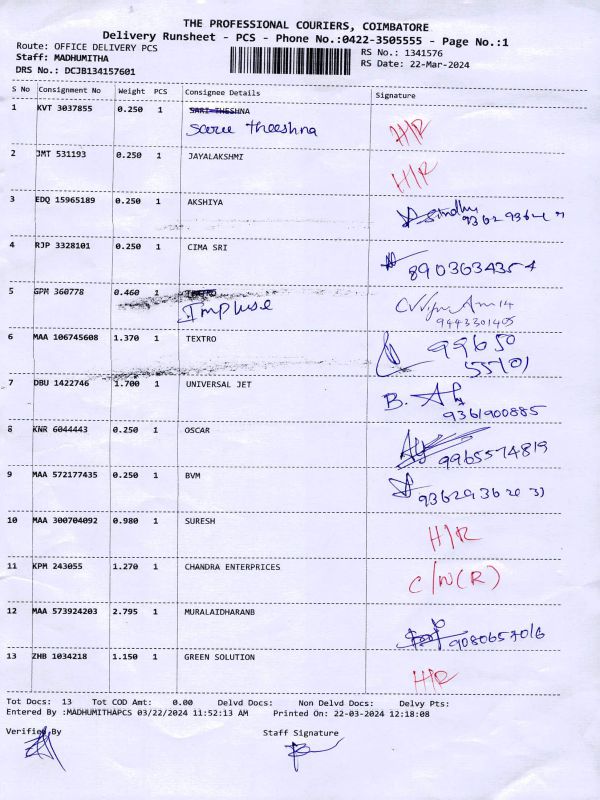 THE PROFESSIONAL COURIERS, COIMBATORE
Delivery Runsheet - PCS - Phone No.:0422-3505555 - Page No.:1
Route: OFFICE DELIVERY PCS RS No.: 1341576
Staff: MADHUMITHA RS Date: 22-Mar-2024
DRS No.: DCJB134157601
S No Consignment No Weight PCS Consignee Details Signature
1 KVT 3037855 0.250 1 SARI THESHNA
Saree theeshna H/R
2 JMT 531193 0.250 1 JAYALAKSHMI H/R
3 EDQ 15965189 0.250 1 AKSHIYA Sindhu
4 RJP 3328101 0.250 1 CIMA SRI 8903634354
5 GPM 360778 0.460 1
Impluse 9443301405
6 MAA 106745608 1.370 1 TEXTRO 99650
55101
7 DBU 1422746 1.700 1 UNIVERSAL JET B.
9361900885
8 KNR 6044443 0.250 1 OSCAR 9965574819
9 MAA 572177435 0.250 1 BVM
10 MAA 300704092 0.980 1 SURESH H/R
11 KPM 243055 1.270 1 CHANDRA ENTERPRICES C/N(R)
12 MAA 573924203 2.795 1 MURALAIDHARANB 9080657016
13 ZHB 1034218 1.150 1 GREEN SOLUTION H/R
Tot Docs: 13 Tot COD Amt: 0.00 Delvd Docs: Non Delvd Docs: Delvy Pts:
Entered By :MADHUMITHAPCS 03/22/2024 11:52:13 AM Printed On: 22-03-2024 12:18:08
Verified By Staff Signature